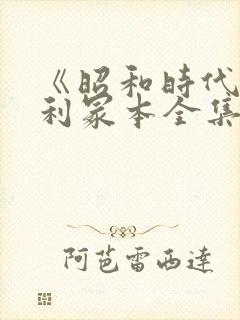 《昭和時代
利冢本全集
阿芭雷西達